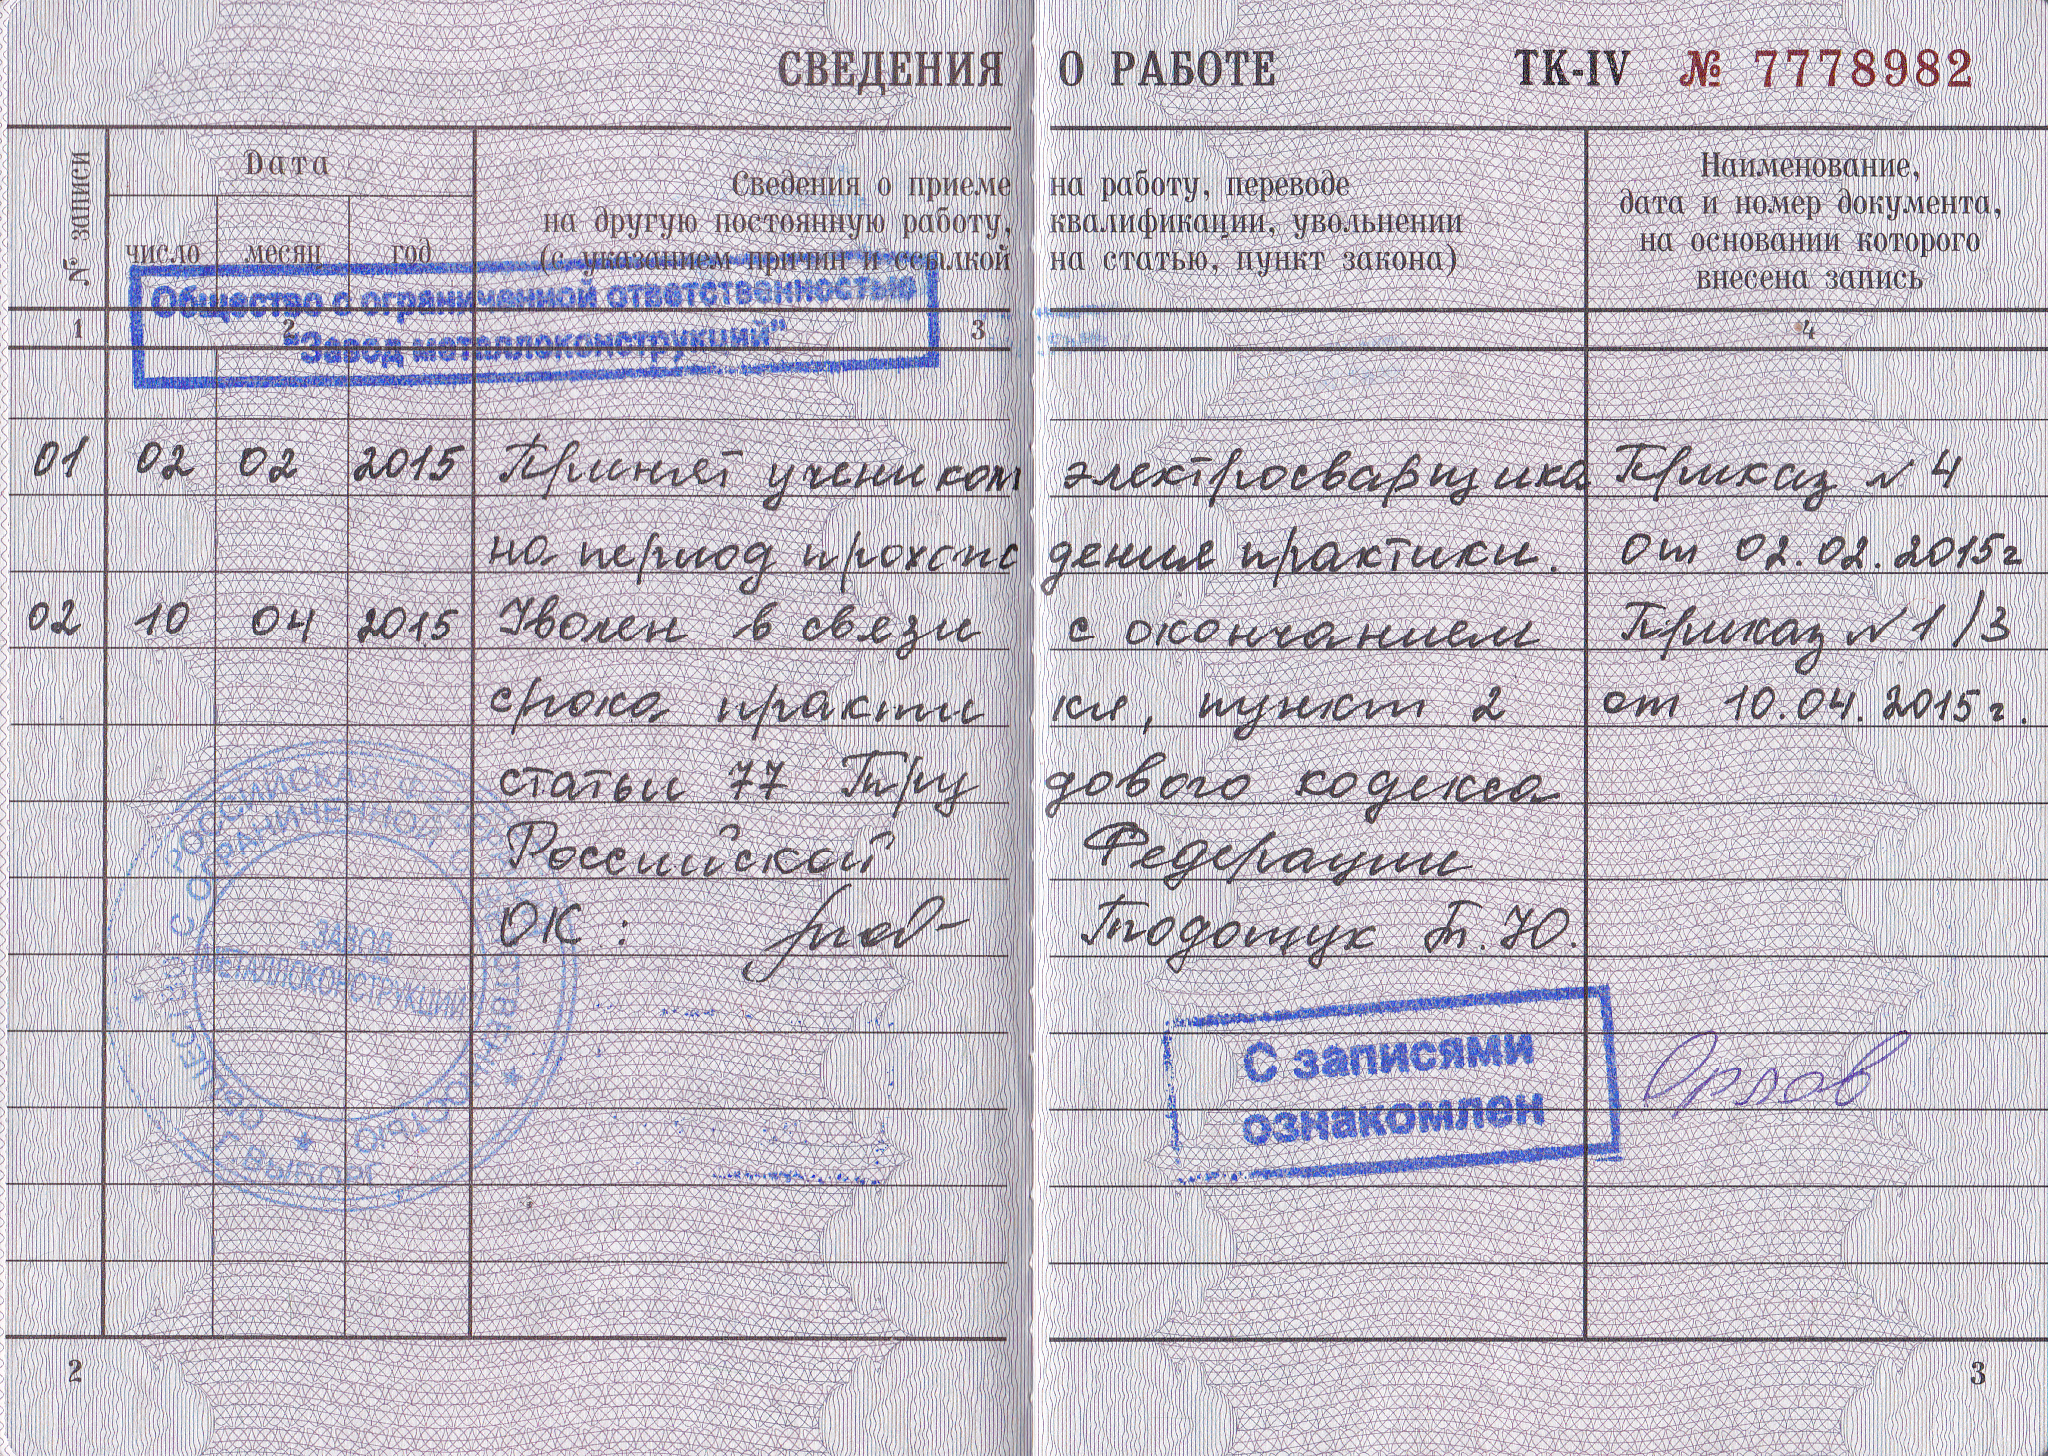 СВЕДЕНИЯ О РАБОТЕ ТК-IV № 7778982
№ записи
Дата
число месяц год
Сведения о приеме на работу, переводе
на другую постоянную работу, квалификации, увольнении
(с указанием причин и ссылкой на статью, пункт закона)
Наименование,
дата и номер документа,
на основании которого
внесена запись
1 2 3 4
Общество с ограниченной ответственностью
"Завод металлоконструкций"
01 02 02 2015 Принят учеником электросварщика Приказ № 4
на период прохождения практики. от 02.02.2015г
02 10 04 2015 Уволен в связи с окончанием Приказ № 1/3
срока практики, пункт 2 от 10.04.2015г.
статьи 77 Трудового кодекса
Российской Федерации
ОК: Ю.
РОССИЙСКАЯ
ОБЩЕСТВО С ОГРАНИЧЕННОЙ ОТВЕТСТВЕННОСТЬЮ
"ЗАВОД
МЕТАЛЛОКОНСТРУКЦИЙ"
Г. ВЫБОРГ
С записями
ознакомлен
Орлов
2 3